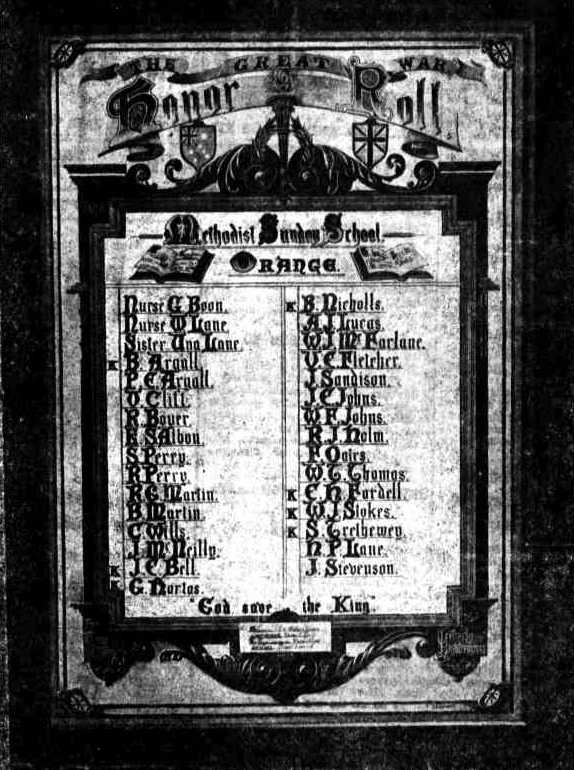 THE GREAT WAR
Honor Roll
Methodist Sunday School.
ORANGE.
Nurse G. Boon.
Nurse Lane
Sister Una Lane.
K B. Argall.
P. C. Argall.
V. Cliff.
R. Boyer
S. Albon.
S. Perry.
R. Perry.
R. G. Martin.
B. Martin.
C. Wills.
J. M. Neilly.
K J. C. Bell.
K G. Nortas.
K B. Nicholls.
A. J. Lucas.
W. J. McFarlane.
V. C. Fletcher.
J. Sandison.
J. C. Johns.
W. F. Johns.
R. J. Holm.
F. Oates.
W. T. Thomas.
K C. H. Fardell
K W. J. Stokes.
K S. Trethewey.
H. P. Lane.
J. Stevenson.
"God save the King"